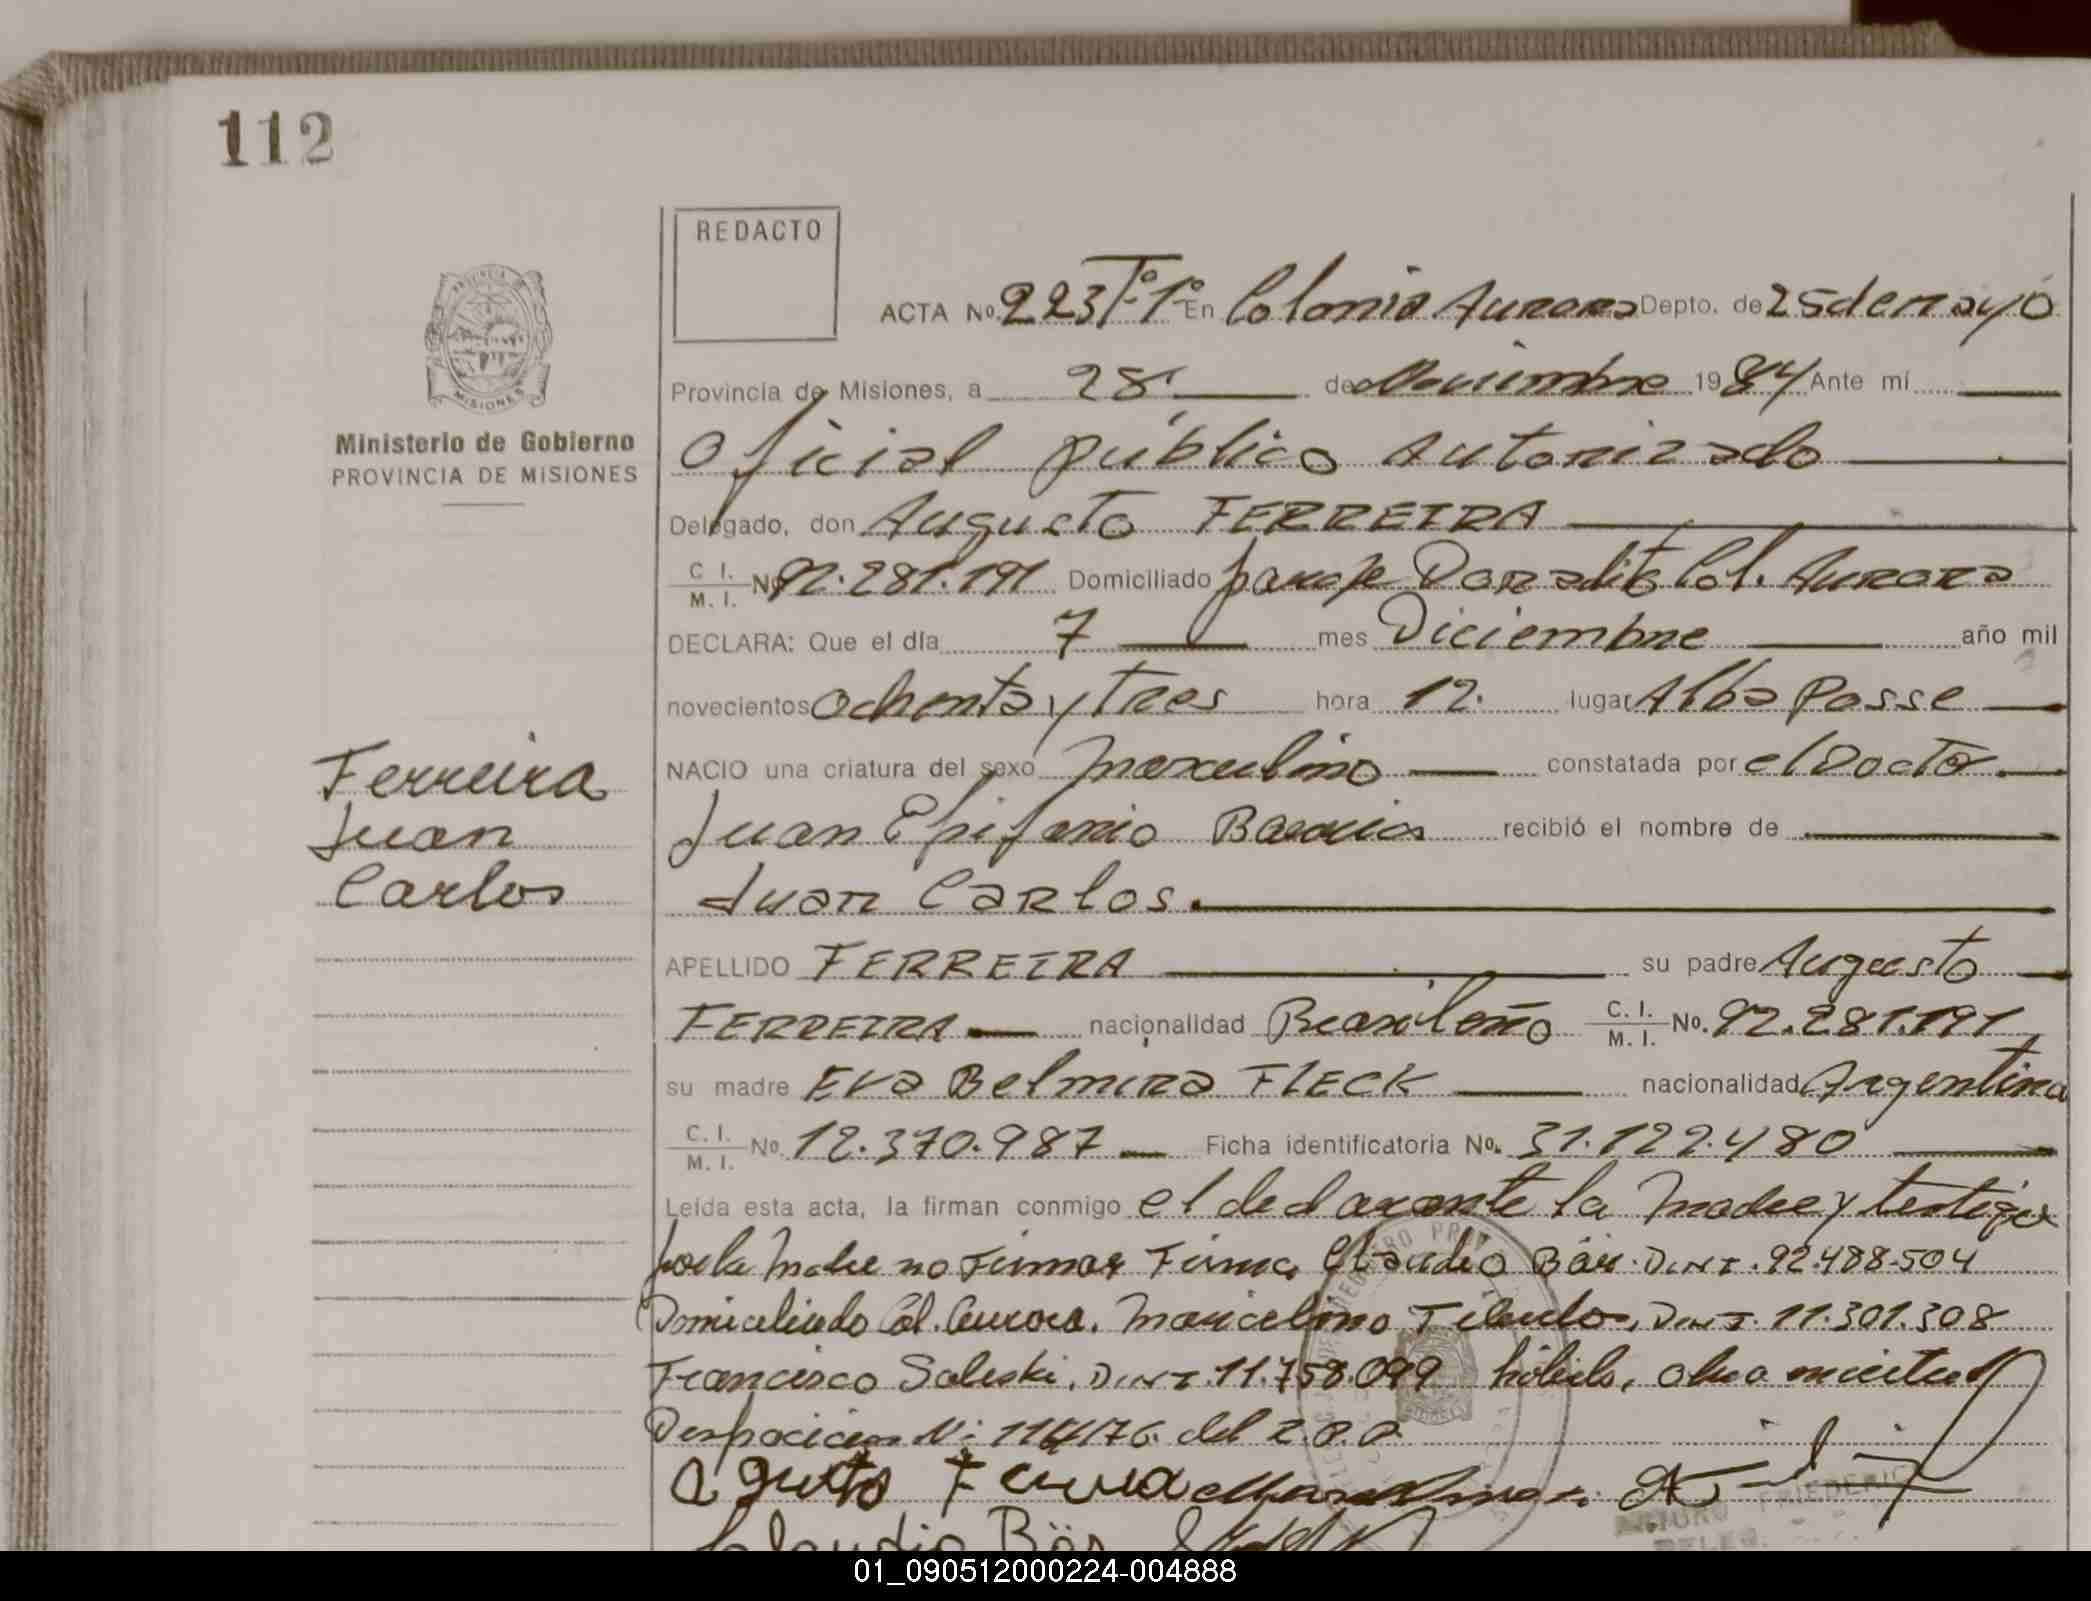 112
REDACTO
PROVINCIA
MISIONES
ACTA No. 223 Tº-1º En Colonia Aurora Depto. de 25 de mayo
Provincia de Misiones, a 28 de Noviembre 1984 Ante mí
Ministerio de Gobierno
PROVINCIA DE MISIONES
Oficial público Autorizado
Delegado, don Augusto FERREIRA
C. I. M. I. No 92.281.191 Domiciliado paraje Doradito Col. Aurora
DECLARA: Que el día 7 mes Diciembre año mil
novecientos ochenta y tres hora 12. lugar Alba Posse
Ferreira
Juan
Carlos
NACIO una criatura del sexo masculino constatada por el Docto.
Juan Epifanio Barrios recibió el nombre de
Juan Carlos.
APELLIDO FERREIRA su padre Augusto
FERREIRA nacionalidad Brasileño C. I. M. I. No. 92.281.191
su madre Eva Belmira FLECK nacionalidad Argentina
C. I. M. I. No. 12.370.987 Ficha identificatoria No. 31.122.480
Leída esta acta, la firman conmigo el declarante la madre y testigos
por la madre no Firmar Firma Claudio Bär. D.N.I. 92.488.504
Domiciliado Col. Aurora. Marcelino D.N.I. 11.301.308
Francisco Saleski. D.N.I. 11.758.099 hábiles,
Disposición Nº 114/76. del R.P.P.
Agusto Ferreira
ARTURO FRIEDERIC
DELEG.
Claudio Bär
01_090512000224-004888